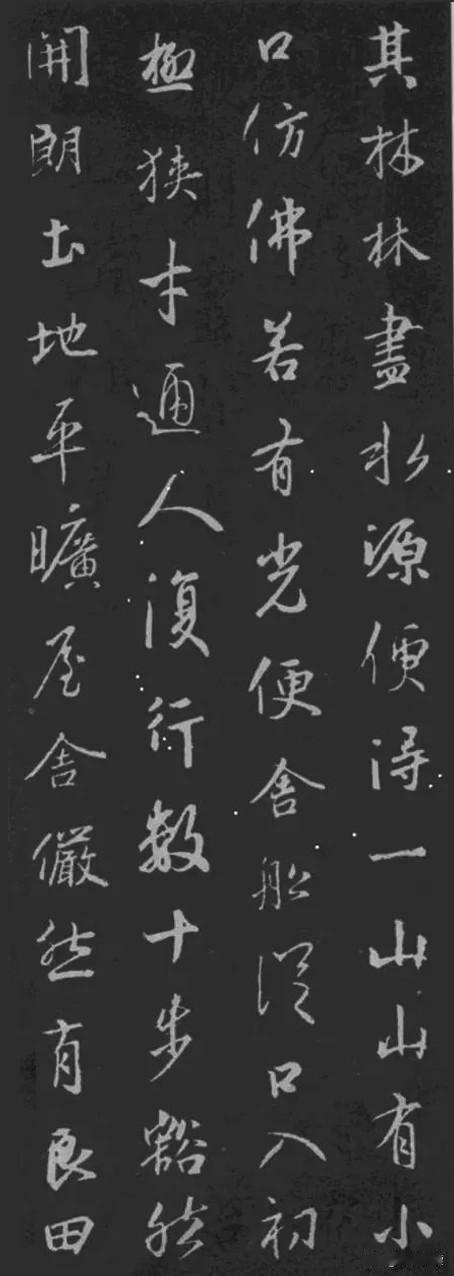 其林林盡水源便得一山山有小
口仿佛若有光便舍船從口入初
極狹才通人復行數十步豁然
開朗土地平曠屋舍儼然有良田